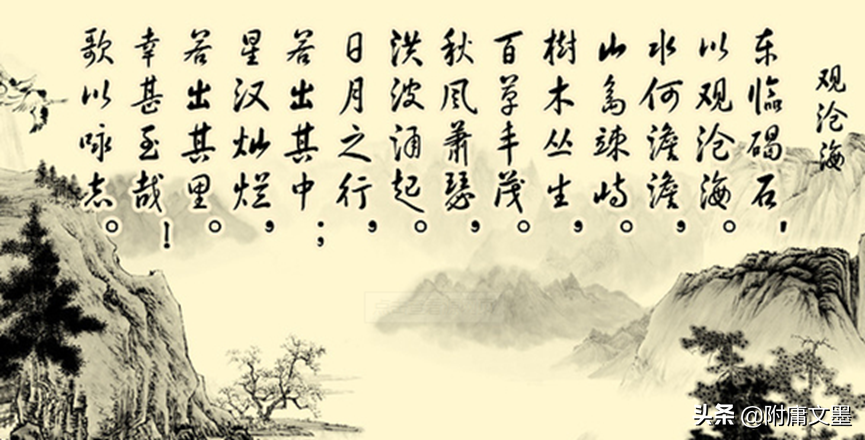 观沧海
东临碣石，
以观沧海。
水何澹澹，
山岛竦峙。
樹木丛生，
百草丰茂。
秋风萧瑟，
洪波涌起。
日月之行，
若出其中；
星汉灿烂，
若出其里。
幸甚至哉！
歌以咏志。
头条 @附庸文墨